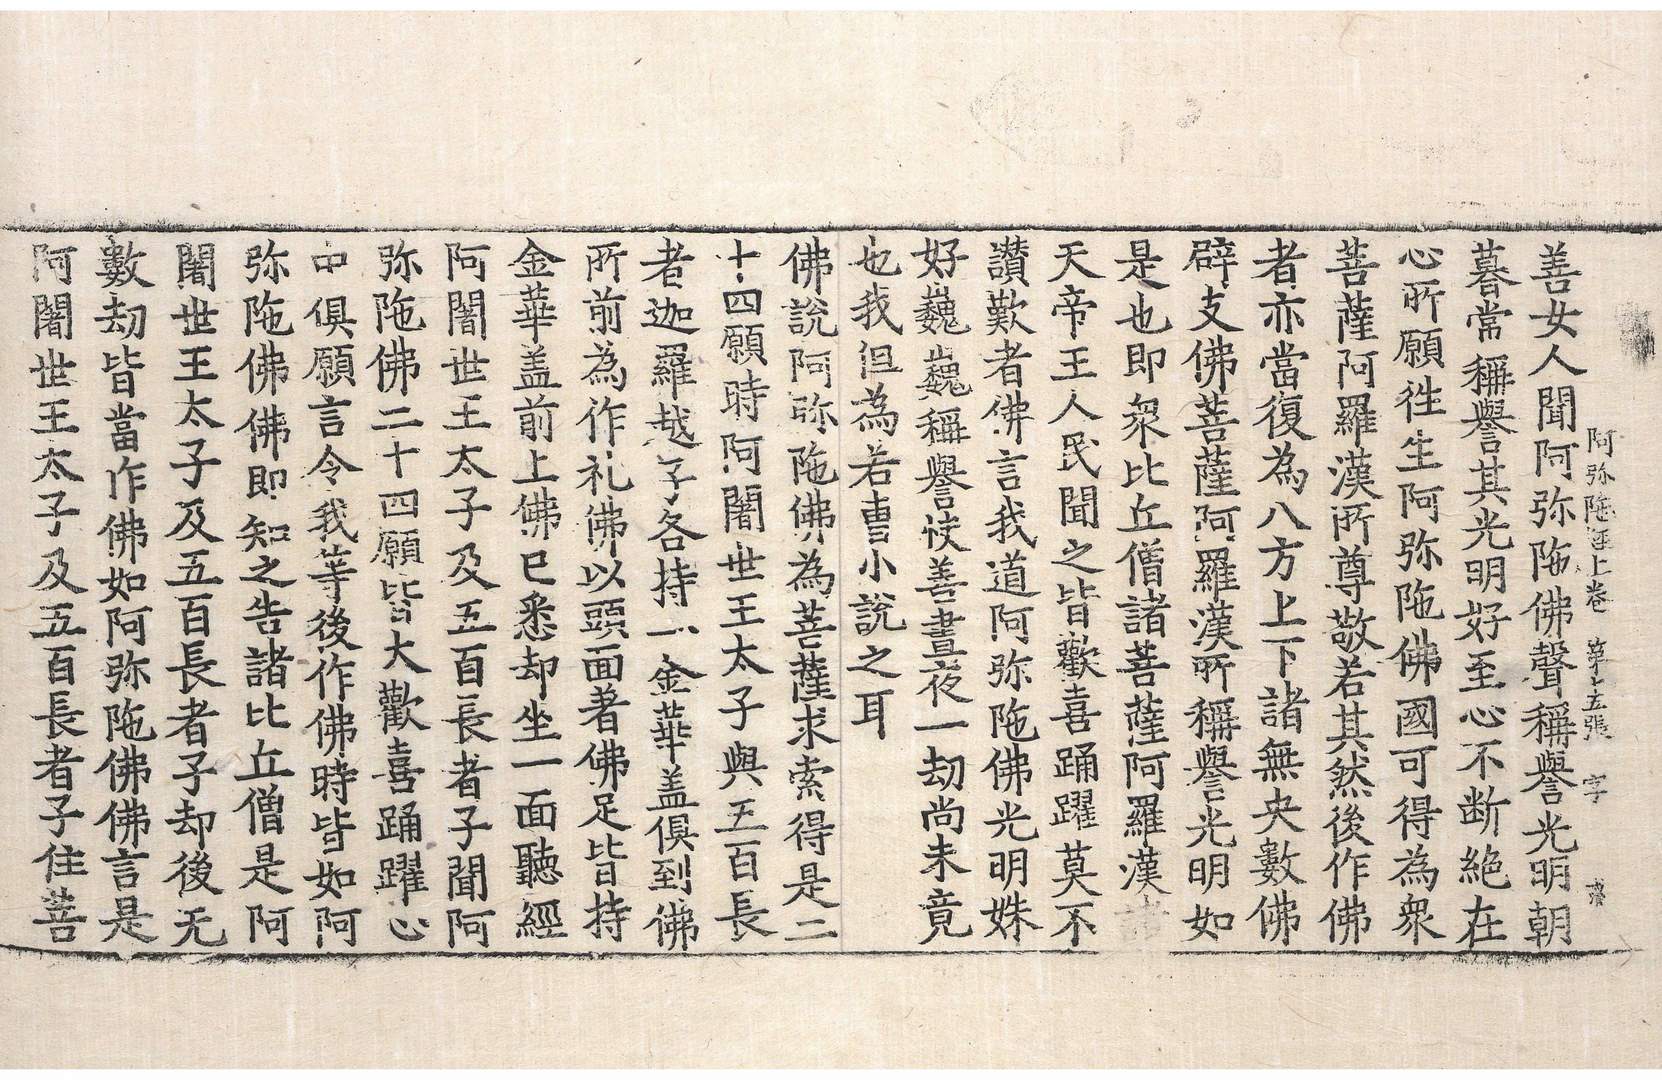 阿弥陁經上卷 第十五張 字
善女人聞阿弥陁佛聲稱譽光明朝
暮常稱譽其光明好至心不断絶在
心所願徃生阿弥陁佛國可得為衆
菩薩阿羅漢所尊敬若其然後作佛
者亦當復為八方上下諸無央數佛
辟支佛菩薩阿羅漢所稱譽光明如
是也即衆比丘僧諸菩薩阿羅漢諸
天帝王人民聞之皆歡喜踊躍莫不
讃歎者佛言我道阿弥陁佛光明姝
好巍巍稱譽快善晝夜一劫尚未竟
也我但為若曺小說之耳
佛說阿弥陁佛為菩薩求索得是二
十四願時阿闍世王太子與五百長
者迦羅越子各持一金華盖俱到佛
所前為作礼佛以頭面著佛足皆持
金華盖前上佛已悉却坐一面聽經
阿闍世王太子及五百長者子聞阿
弥陁佛二十四願皆大歡喜踊躍心
中俱願言令我等後作佛時皆如阿
弥陁佛佛即知之告諸比丘僧是阿
闍世王太子及五百長者子却後无
數劫皆當作佛如阿弥陁佛佛言是
阿闍世王太子及五百長者子住菩